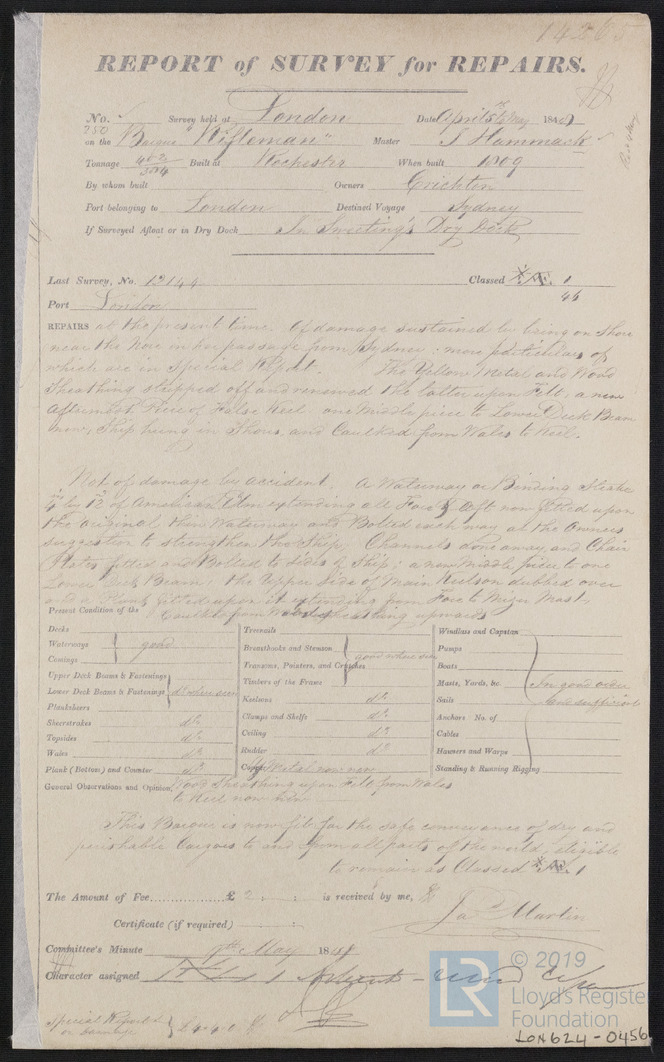 14265
REPORT of SURVEY for REPAIRS.
No. Survey held at London Date April 5th May 1848
250 on the Barque "Rifleman" Master J Hammack
Tonnage 402 Built at Rochester When built 1809
By whom built Owners Crichton
Port belonging to London Destined Voyage Sydney
If Surveyed Afloat or in Dry Dock In Sweeting's Dry Dock
Last Survey, No. 13144 Classed Æ 1
Port London 46
REPAIRS at the present time. Of damage sustained by being on shore
near the Nore in her passage from Sydney : more particulars of
which are in Special Report. The Yellow Metal and Wood
Sheathing stripped off and renewed the latter upon Felt, a new
Aftermost Piece of False Keel one Middle piece to Lower Deck Beam
now, Ship hung in Shores and Caulked from Wales to Keel.
Not of damage by accident. A Waterway or Binding Strake
by 12 of American Elm extending all Fore & Aft now fitted upon
the original thin Waterway and Bolted each way at the Owners
suggestion to strengthen the Ship. Channels done away and Chain
Plates fitted and Bolted to Sides of Ship; a new Middle piece to one
Lower Deck Beam; the Upper Side of Main Keelson dubbed over
and a Plank fitted upon it extending from Fore to Mizen Mast.
Caulked from Wood sheathing upwards
Present Condition of the
Decks
Waterways good
Comings
Upper Deck Beams & Fastenings
Lower Deck Beams & Fastenings do where seen
Planksheers
Sheerstrakes do
Topsides do
Wales do
Plank (Bottom) and Counter do
Treenails
Breasthooks and Stemson good where seen
Transoms, Pointers, and Crutches
Timbers of the Frame
Keelsons do
Clamps and Shelfs do
Ceiling do
Rudder do
Copper Y Metal now new
Windlass and Capstan
Pumps
Boats
Masts, Yards, &c. In good order
Sails and sufficient
Anchors No. of
Cables
Hawsers and Warps
Standing & Running Rigging
General Observations and Opinion, Wood Sheathing upon Felt from Wales
to Keel now new
This Barque is now fit for the safe conveyance of dry and
perishable Cargoes to and from all parts of the world, eligible
to remain as Classed Æ 1
The Amount of Fee £ 2 : : is received by me,
Jas Martin
Certificate (if required) :
Committee's Minute 9th May 1848
Character assigned
Special Report on Damage } £4.4.0
LR © 2019
Lloyd's Register
Foundation
LON624-0456